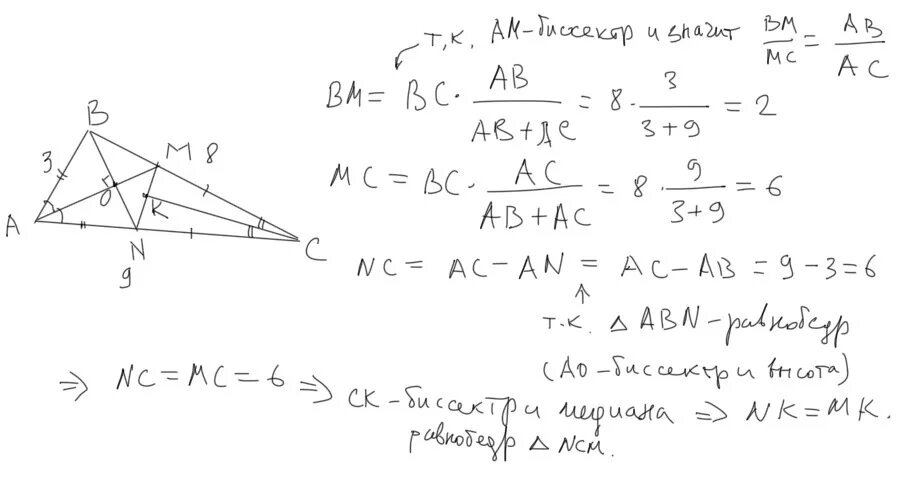 т.к. АМ-биссектр и значит BM/MC = AB/AC
BM = BC · AB/(AB+AC) = 8 · 3/(3+9) = 2
MC = BC · AC/(AB+AC) = 8 · 9/(3+9) = 6
NC = AC-AN = AC-AB = 9-3=6
↑
т.к. △ ABN-равнобедр
(АО-биссектр и высота)
⇒ NC=MC=6 ⇒ СК-биссектр и медиана ⇒ NK=MK.
равнобедр △ NCM.
B
3
M 8
O
K
A
N
C
9